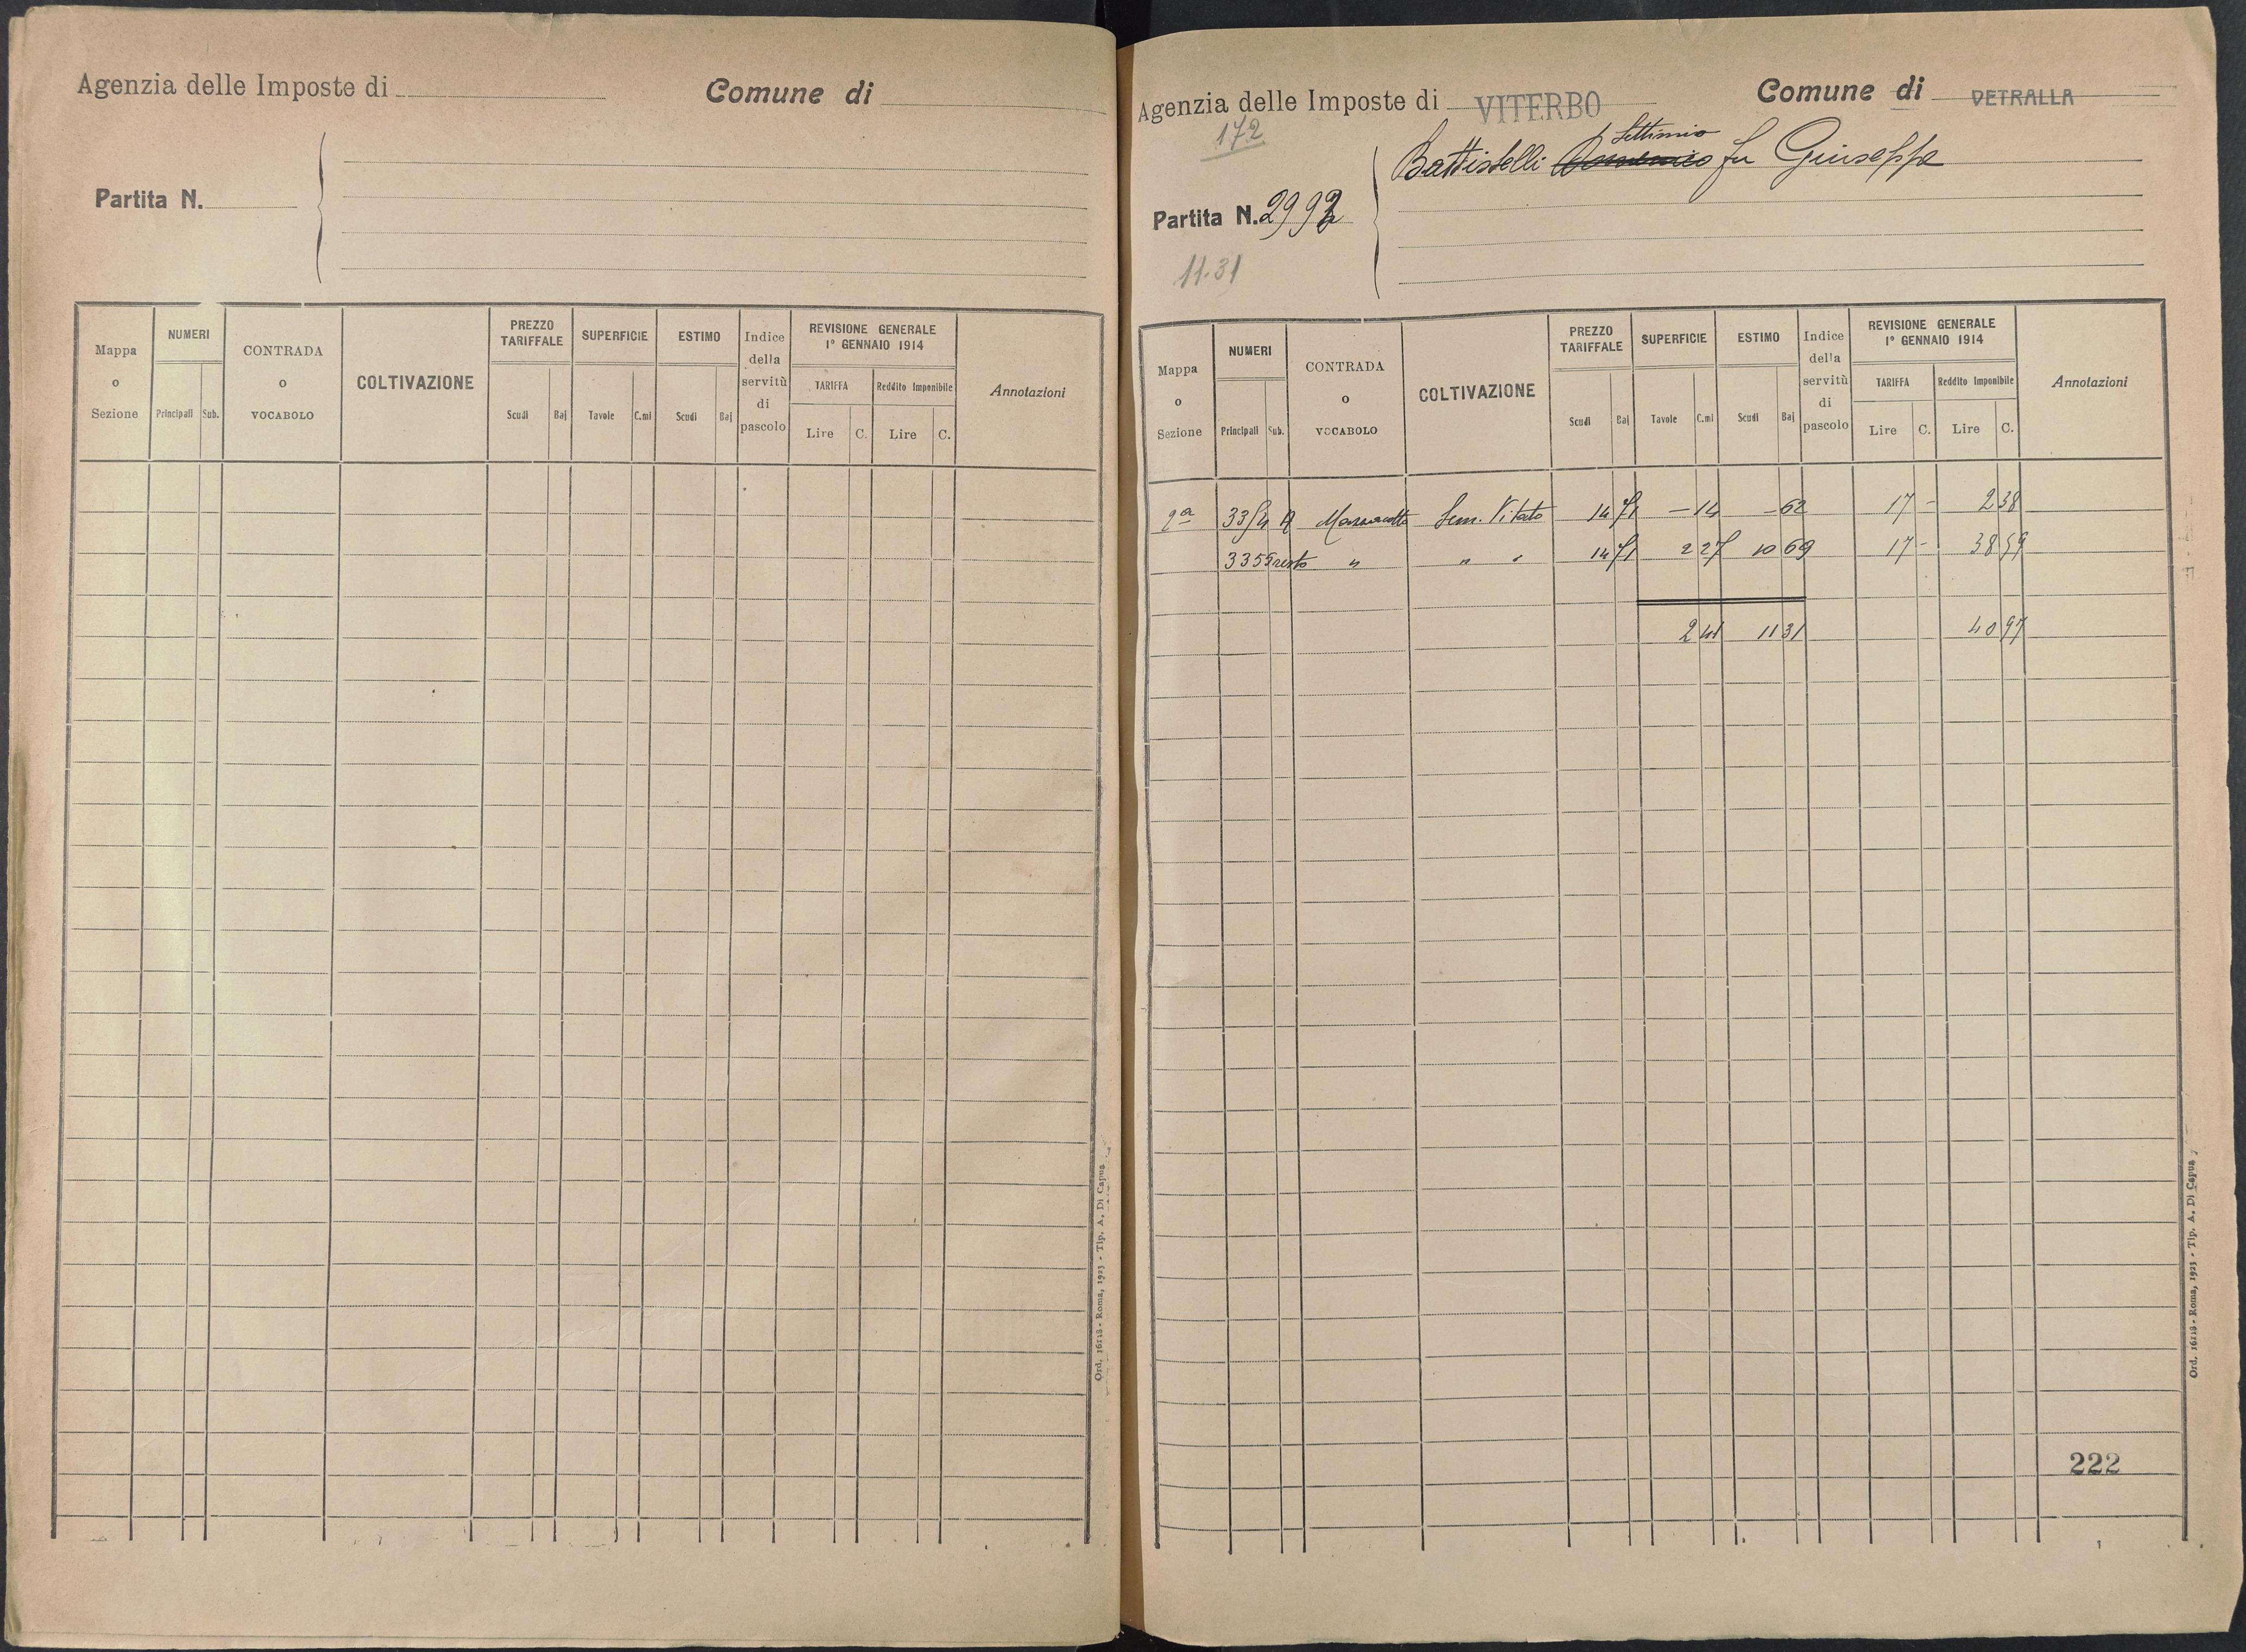 Agenzia delle Imposte di
Comune di
Partita N.
Mappa o Sezione
NUMERI
Principali Sub.
CONTRADA o VOCABOLO
COLTIVAZIONE
PREZZO TARIFFALE
Scudi Baj
SUPERFICIE
Tavole C.mi
ESTIMO
Scudi Baj
Indice della servitù di pascolo
REVISIONE GENERALE
1° GENNAIO 1914
TARIFFA Reddito Imponibile
Lire C. Lire C.
Annotazioni
Ord. 16118 - Roma, 1923 - Tip. A. Di Capua
Agenzia delle Imposte di VITERBO
Comune di VETRALLA
172
Settimio
Battistelli Domenico fu Giuseppe
Partita N. 2992
11.31
Mappa o Sezione
NUMERI
Principali Sub.
CONTRADA o VOCABOLO
COLTIVAZIONE
PREZZO TARIFFALE
Scudi Baj
SUPERFICIE
Tavole C.mi
ESTIMO
Scudi Baj
Indice della servitù di pascolo
REVISIONE GENERALE
1° GENNAIO 1914
TARIFFA Reddito Imponibile
Lire C. Lire C.
Annotazioni
Sem. Vitato 14 71 - 14 - 62 17 - 2 38
3355 resto " " " 14 71 2 27 10 69 17 - 38 59
2 41 11 31 40 97
222
Ord. 16118 - Roma, 1923 - Tip. A. Di Capua